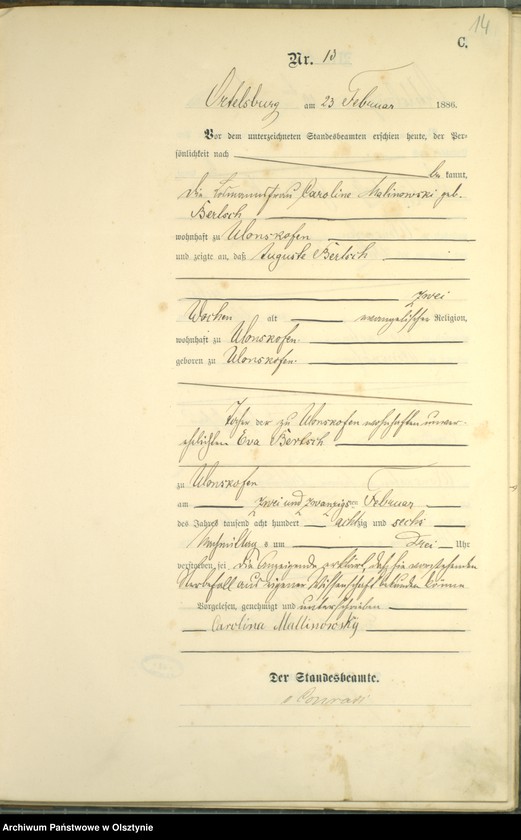 14
C.
Nr. 13
Ortelsburg am 23 Februar 1886.
Vor dem unterzeichneten Standesbeamten erschien heute, der Per-
sönlichkeit nach
be kannt,
die Losmannsfrau Caroline Malinowski geb.
Bertsch
wohnhaft zu Ulonskofen
und zeigte an, daß Auguste Bertsch
zwei
Wochen alt evangelischer Religion,
wohnhaft zu Ulonskofen
geboren zu Ulonskofen
Tochter der zu Ulonskofen wohnhaften unver-
ehelichten Eva Bertsch
zu Ulonskofen
am zwei und zwanzigsten Februar
des Jahres tausend acht hundert achtzig und sechs
Nachmittags um Drei Uhr
verstorben sei, die Anzeigende erklärt, daß sie vorstehenden
Sterbefall aus eigener Wissenschaft bekunden könne
Vorgelesen, genehmigt und unterschrieben
Carolina Mallinowsky
Der Standesbeamte.
Conradi
Archiwum Państwowe w Olsztynie